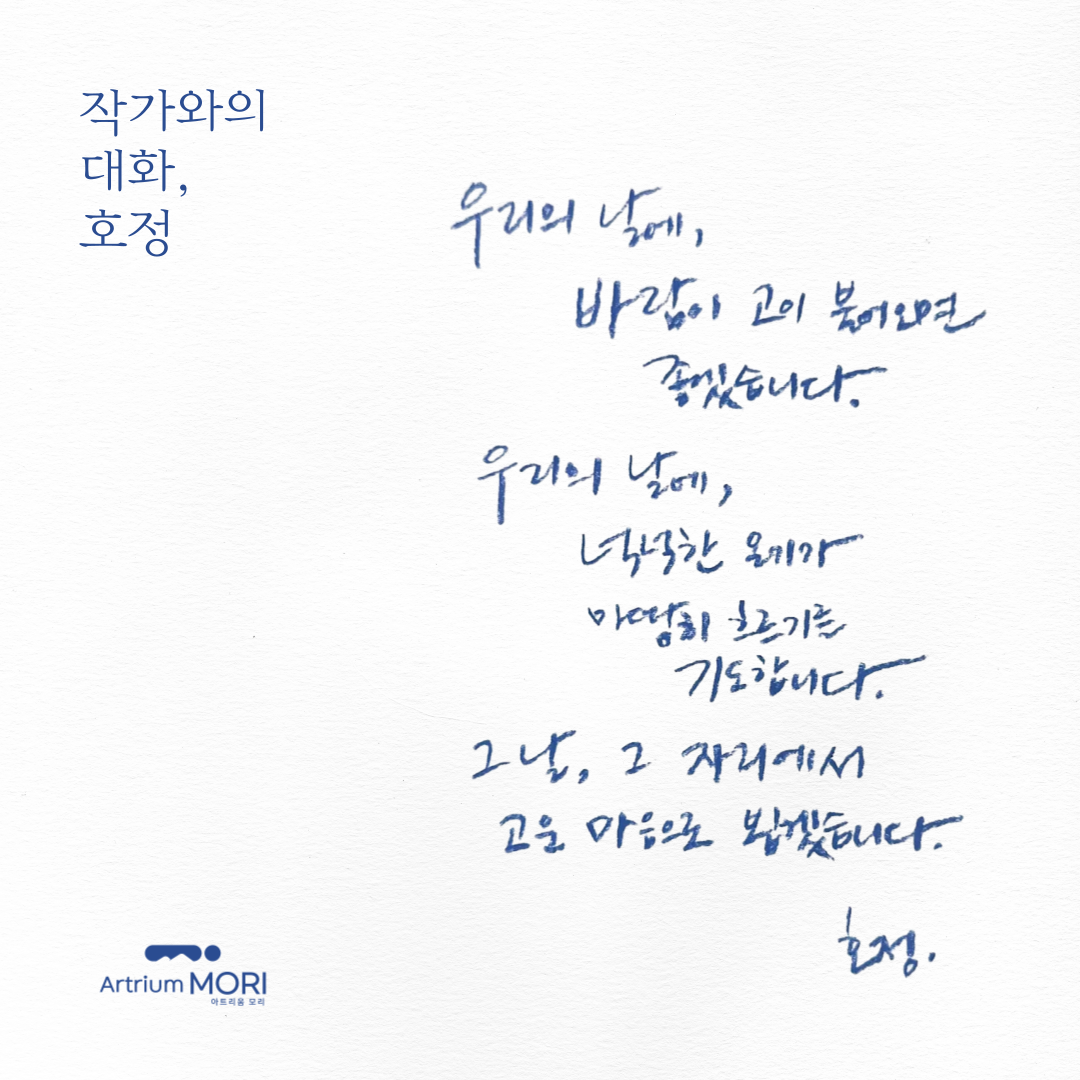 작가와의
대화,
호정
우리의 날에,
바람이 고이 불어오면
좋겠습니다.
우리의 날에,
넉넉한 온기가
마땅히 흐르기를
기도합니다.
그날, 그 자리에서
고운 마음으로 뵙겠습니다.
호정.
Artrium MORI
아트리움 모리